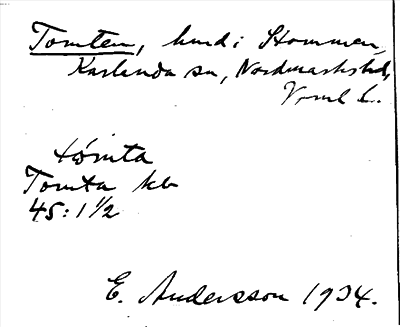 Tomten, hmd i Stommen,
Karlanda sn, Nordmarks hd,
Vrml L.
tómta
Tomta kb
45:1 1/2
E. Andersson 1934.